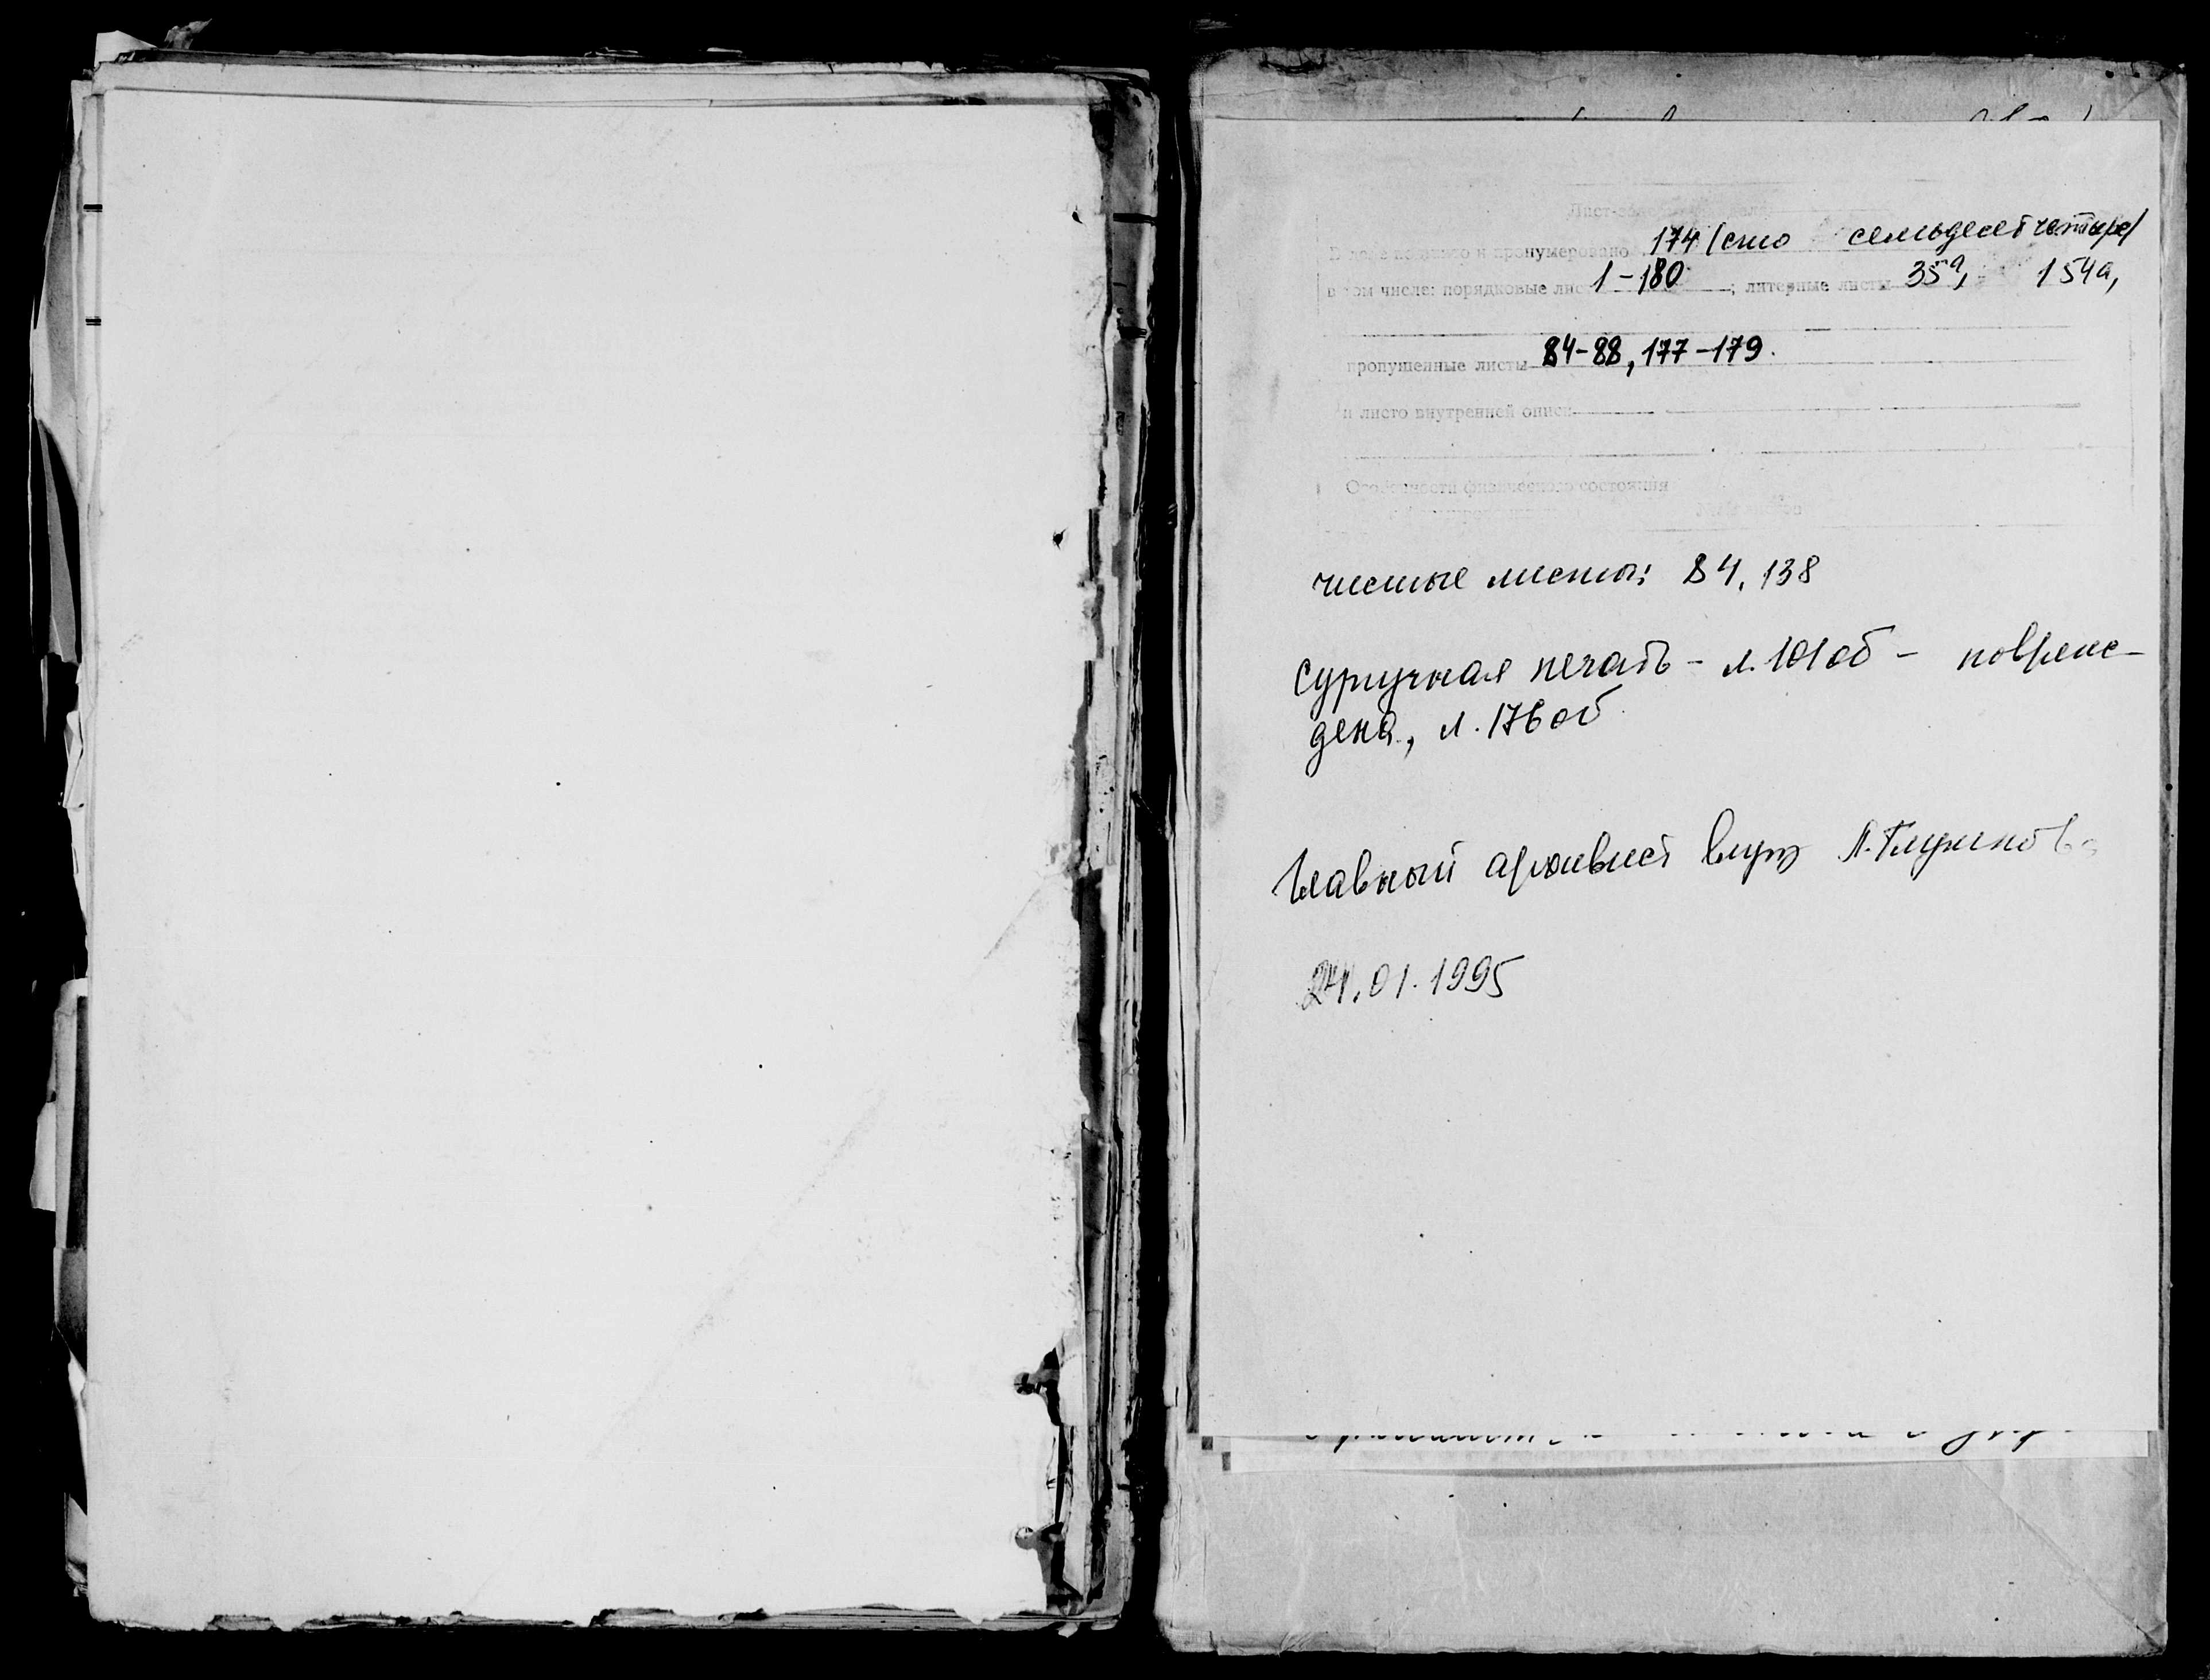 В деле подшито и пронумеровано 174 /сто семьдесят четыре/
в том числе: порядковые листы 1-180; литерные листы 35а, 154а,
пропущенные листы 84-88, 177-179.
и листо внутренней описи
Особенности физического состояния
чистые листы: 84, 138
Сургучная печать - л. 101об - повреж-
дена, л. 176об
Главный архивист
24.01.1995